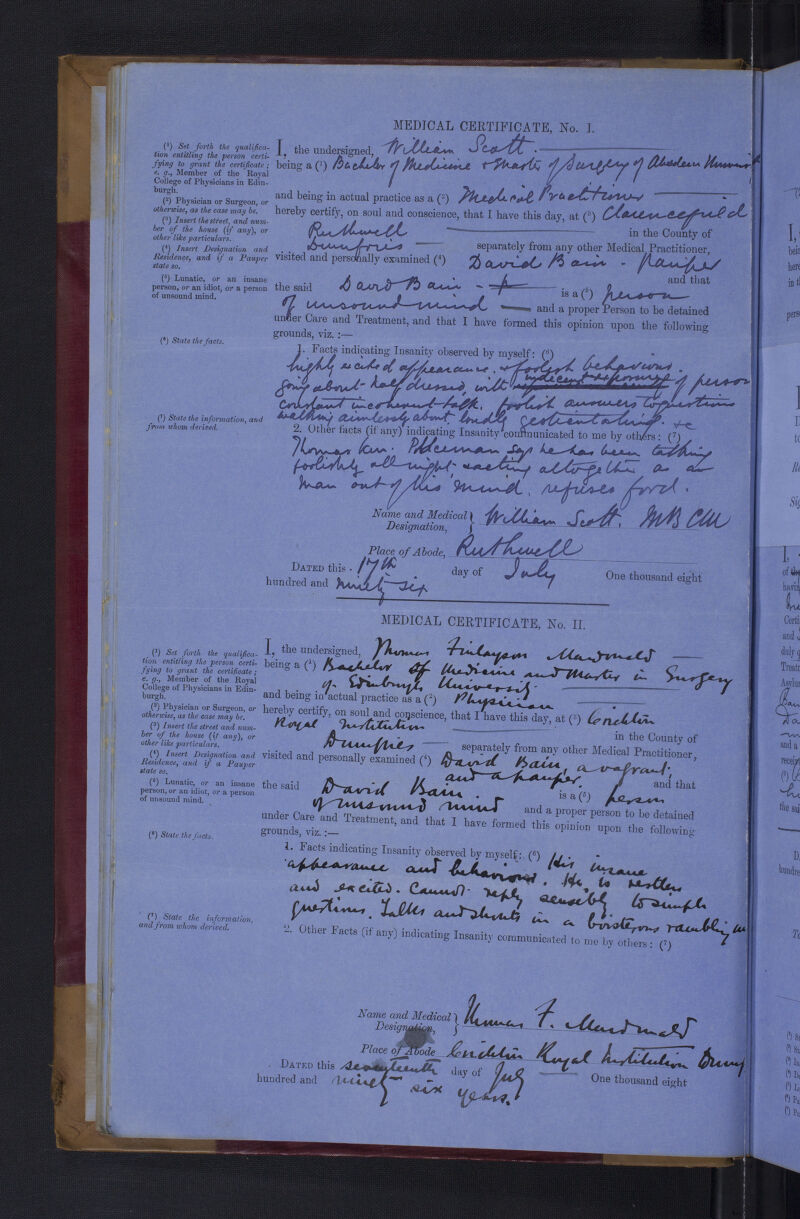 MEDICAL CERTIFICATE, No. I.
(¹) Set forth the qualifica-
tion entitling the person certi-
fying to grant the certificate;
e. g., Member of the Royal
College of Physicians in Edin-
burgh.
(²) Physician or Surgeon, or
otherwise, as the case may be.
(³) Insert the street, and num-
ber of the house (if any), or
other like particulars.
(⁴) Insert Designation and
Residence, and if a Pauper
state so.
(⁵) Lunatic, or an insane
person, or an idiot, or a person
of unsound mind.
(⁶) State the facts.
(⁷) State the information, and
from whom derived.
I, the undersigned, William Scott.
being a (¹) Bachelor of Medicine & Master of Surgery of Aberdeen
and being in actual practice as a (²) Medical Practitioner
hereby certify, on soul and conscience, that I have this day, at (³) Clarencefield
Ruthwell in the County of
Dumfries separately from any other Medical Practitioner,
visited and personally examined (⁴) David Bain - Pauper
and that
the said David Bain is a (⁵) person
of unsound mind and a proper Person to be detained
under Care and Treatment, and that I have formed this opinion upon the following
grounds, viz. :—
1. Facts indicating Insanity observed by myself: (⁶)
highly excited appearance. & foolish behaviour.
going about half dressed, with indecent exposure of person
constant incoherent talk. foolish answers to questions
walking aimlessly about loudly gesticulating. &c
2. Other facts (if any) indicating Insanity communicated to me by others: (⁷)
Thomas Kerr. Policeman says he has been talking
foolishly all night & acting altogether as a
man out of his mind. refuses food.
Name and Medical Designation, William Scott. MB CM
Place of Abode, Ruthwell
DATED this 17th day of July One thousand eight
hundred and ninety six
MEDICAL CERTIFICATE, No. II.
(¹) Set forth the qualifica-
tion entitling the person certi-
fying to grant the certificate;
e. g., Member of the Royal
College of Physicians in Edin-
burgh.
(²) Physician or Surgeon, or
otherwise, as the case may be.
(³) Insert the street and num-
ber of the house (if any), or
other like particulars.
(⁴) Insert Designation and
Residence, and if a Pauper
state so.
(⁵) Lunatic, or an insane
person, or an idiot, or a person
of unsound mind.
(⁶) State the facts.
(⁷) State the information,
and from whom derived.
I, the undersigned, Thomas Finlayson Macdonald
being a (¹) Bachelor of Medicine and Master in Surgery
of Edinburgh University
and being in actual practice as a (²) Physician
hereby certify, on soul and conscience, that I have this day, at (³) Crichton
Royal Institution in the County of
Dumfries separately from any other Medical Practitioner,
visited and personally examined (⁴) David Bain, a vagrant,
and a pauper, and that
the said David Bain is a (⁵) person
of unsound mind and a proper person to be detained
under Care and Treatment, and that I have formed this opinion upon the following
grounds, viz. :—
1. Facts indicating Insanity observed by myself: (⁶) His insane
appearance and behaviour. He is restless
and excited. Cannot reply sensibly to simple
questions. Talks and shouts in a boisterous rambling
2. Other Facts (if any) indicating Insanity communicated to me by others: (⁷)
Name and Medical Designation, Thomas F. Macdonald
Place of Abode Crichton Royal Institution
DATED this seventeenth day of July One thousand eight
hundred and ninety six years.